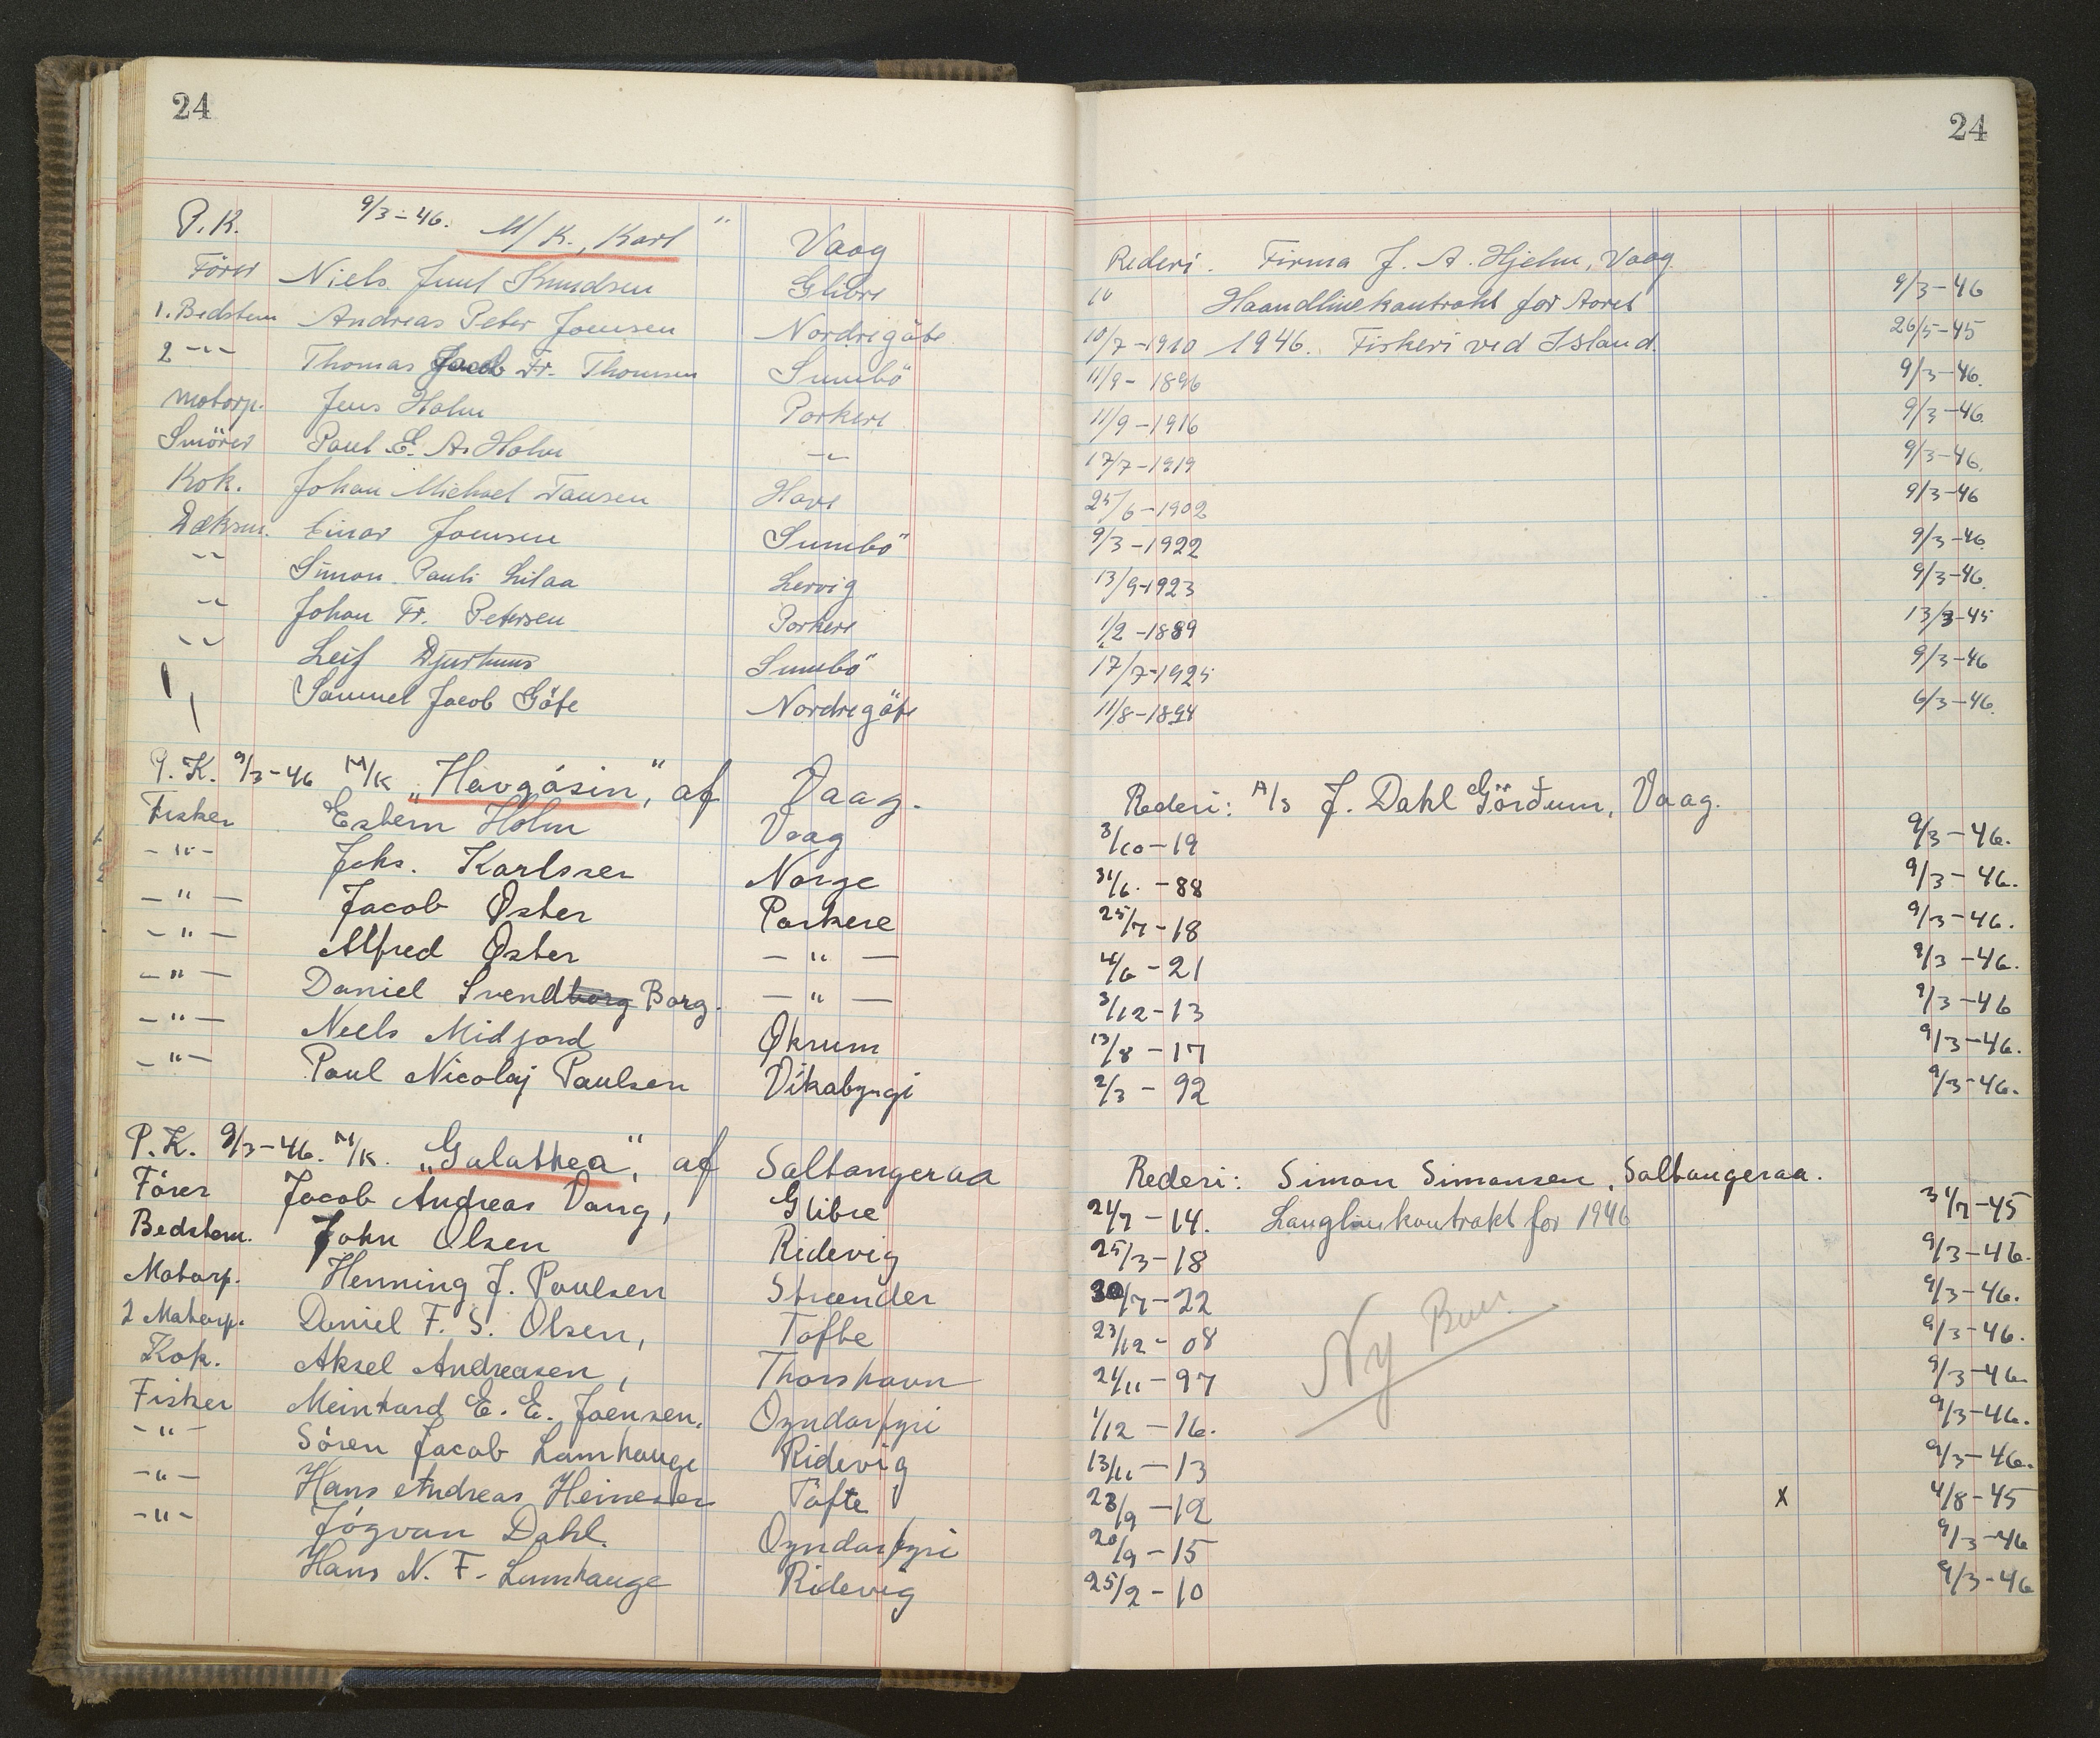 24
P.K. 9/3-46. M/K. „Karl" Vaag
Förer Niels Juul Knudsen Glibre
1. Bedstem Andreas Peter Joensen Nordregöte
2 -"- Thomas Jacob Fr. Thomsen Sumbö
Motorp. Jens Holm Porkere
Smörer Poul E. A. Holm -"-
Kok. Johan Michael Hansen Hove
Dæksm. Einar Joensen Sumbö
-"- Simon Pauli Lilaa Lervig
-"- Johan Fr. Petersen Porkere
-"- Leif Djurhuus Sumbö
" Samuel Jacob Göte Nordregöte
P.K. 9/3-46 M/K „Havgásin", af Vaag.
Fisker Esbern Holm Vaag
-"- Johs. Karlsen Norge
-"- Jacob Øster Porkere
-"- Alfred Øster -"-
-"- Daniel Svendborg Borg. -"-
-"- Niels Midjord Økrum
-"- Poul Nicolaj Poulsen Vikabyrgi
P.K. 9/3-46. M/K. „Galathea", af Saltangeraa
Förer Jacob Andreas Vang, Glibre
Bedstem. John Olsen Ridevig
Motorp. Henning J. Poulsen Strænder
2 Motorp. Daniel F. S. Olsen, Tofte
Kok. Aksel Andreasen, Thorshavn
Fisker Meinhard E. E. Joensen. Oyndarfyri
-"- Sören Jacob Lamhauge Ridevig
-"- Hans Andreas Heinesen Töfte
-"- Jógvan Dahl. Oyndarfyri
Hans N. F. Lamhauge Ridevig
24
Rederi. Firma J. A. Hjelm, Vaag.
" Haandlinekontrakt for Aaret 9/3-46
10/7-1910 1946. Fiskeri ved Island. 26/5-45
11/9-1896 9/3-46.
11/9-1916 9/3-46.
17/7-1919 9/3-46.
25/6-1902 9/3-46
9/3-1922 9/3-46.
13/9-1923 9/3-46.
1/2-1889 13/3-45
17/7-1925 9/3-46
11/8-1894 6/3-46.
Rederi: A/S J. Dahl Görðum, Vaag.
3/10-19 9/3-46.
31/6.-88 9/3-46.
25/7-18 9/3-46.
4/6-21 9/3-46.
3/12-13 9/3-46
13/8-17 9/3-46.
2/3-92 9/3-46.
Rederi: Simon Simonsen, Saltangeraa.
21/7-14. Langlinekontrakt for 1946 31/7-45
25/3-18 9/3-46.
30/7-22 9/3-46.
23/12-08 9/3-46.
Ny
21/11-97 9/3-46.
1/12-16. 9/3-46.
13/11-13 9/3-46.
28/9-12 x 4/8-45
20/9-15 9/3-46
25/2-10 9/3-46